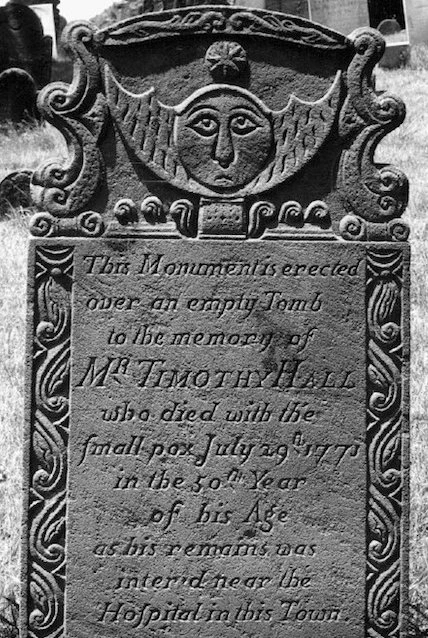 This Monument is erected
over an empty Tomb
to the memory of
Mʀ TIMOTHY HALL
who died with the
ſmall pox July 29th 1771
in the 50th Year
of his Age
as his remains was
inter'd near the
Hoſpital in this Town.